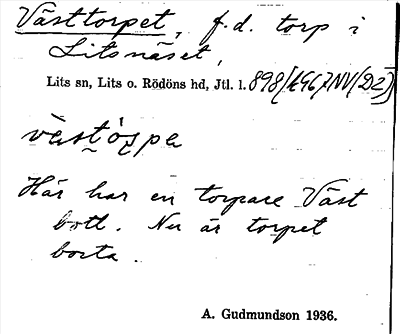 Västtorpet, f.d. torp i
Litsnäset,
Lits sn, Lits o. Rödöns hd, Jtl. l. 898
Här har en torpare Väst
bott. Nu är torpet
borta.
A. Gudmundson 1936.